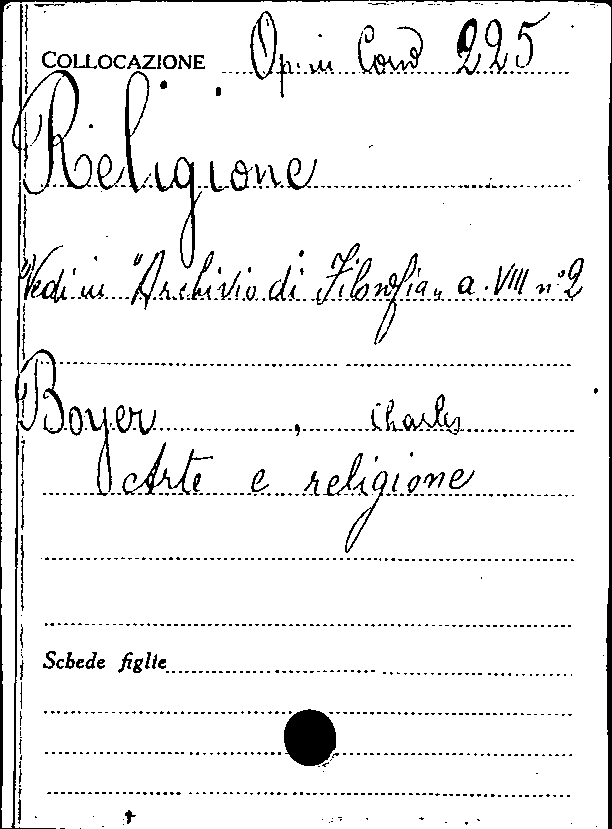 COLLOCAZIONE Op. in Cons 225
Religione
Vedi in "Archivio di Filosofia" a. VIII n° 2
Boyer, Charles
Arte e religione
Schede figlie